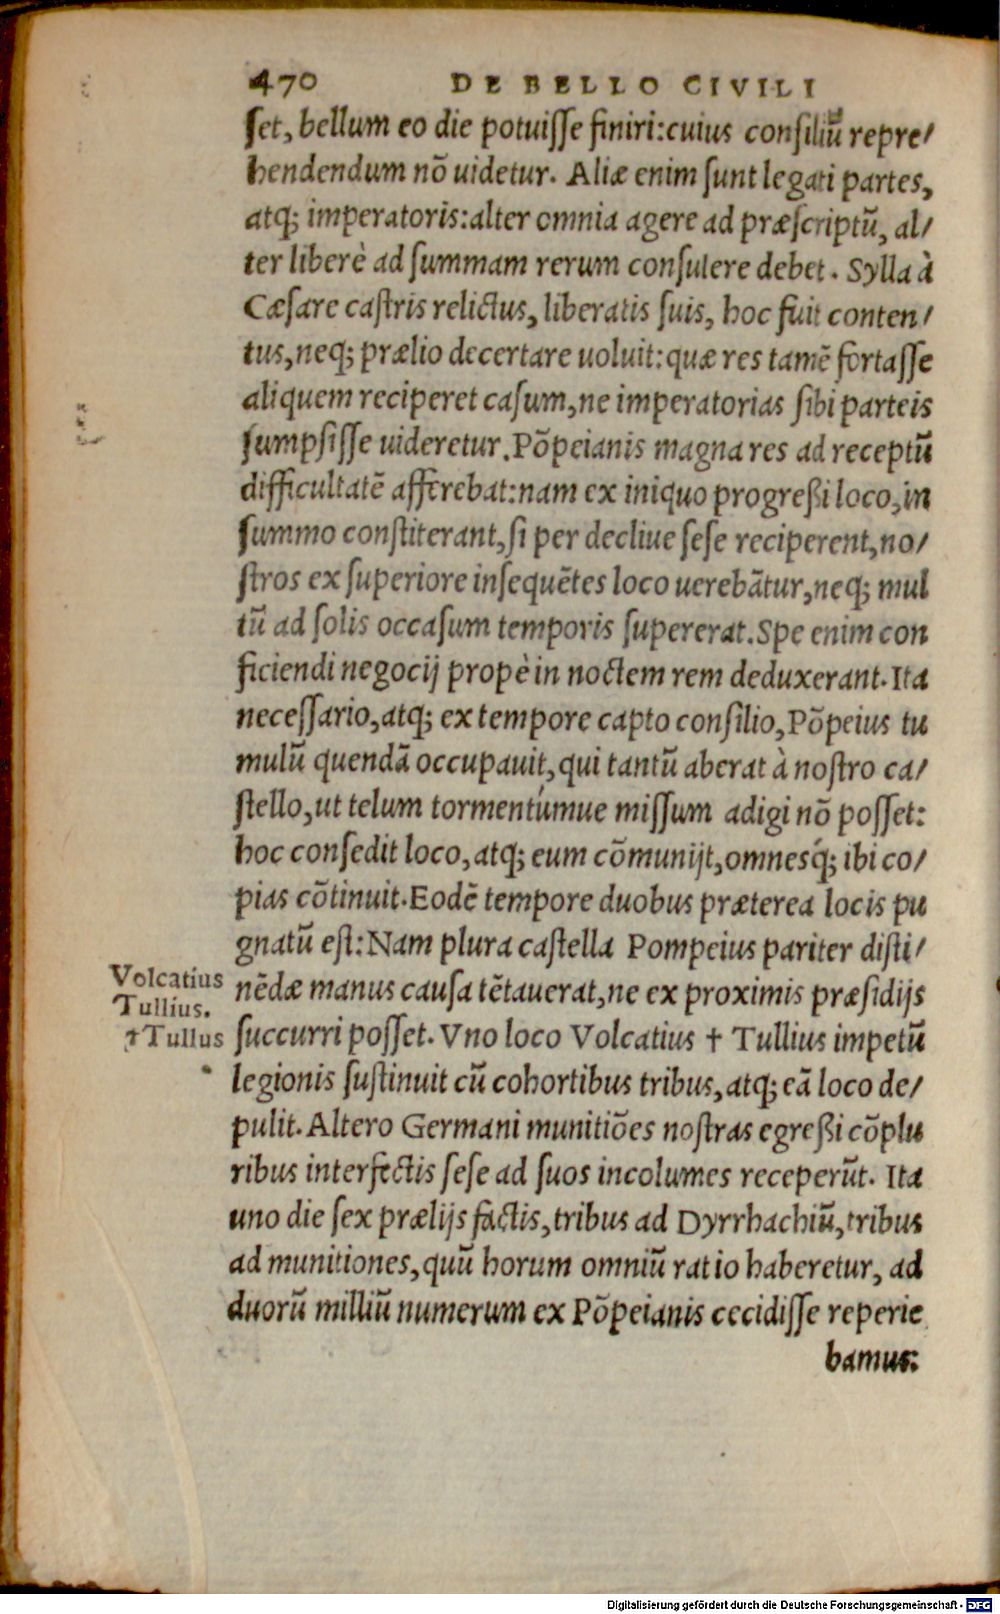 470 DE BELLO CIVILI
ſet, bellum eo die potuiſſe finiri:cuius conſiliũ repre/
hendendum nõ uidetur. Aliæ enim ſunt legati partes,
atq; imperatoris:alter omnia agere ad præſcriptũ, al/
ter liberè ad ſummam rerum conſulere debet. Sylla à
Cæſare caſtris relictus, liberatis ſuis, hoc fuit conten/
tus, neq; prælio decertare uoluit:quæ res tamẽ fortaſſe
aliquem reciperet caſum, ne imperatorias ſibi parteis
ſumpſiſſe uideretur. Põpeianis magna res ad receptũ
difficultatẽ afferebat:nam ex iniquo progreßi loco, in
ſummo conſtiterant, ſi per decliue ſeſe reciperent, no/
ſtros ex ſuperiore inſequẽtes loco uerebãtur, neq; mul
tũ ad ſolis occaſum temporis ſupererat. Spe enim con
ficiendi negocij propè in noctem rem deduxerant. Ita
neceſſario, atq; ex tempore capto conſilio, Põpeius tu
mulũ quendã occupauit, qui tantũ aberat à noſtro ca/
ſtello, ut telum tormentúmue miſſum adigi nõ poſſet:
hoc conſedit loco, atq; eum cõmunijt, omnesq́; ibi co/
pias cõtinuit. Eodẽ tempore duobus præterea locis pu
gnatũ eſt: Nam plura caſtella Pompeius pariter diſti/
nẽdæ manus cauſa tẽtauerat, ne ex proximis præſidijs
ſuccurri poſſet. Vno loco Volcatius † Tullius impetũ
legionis ſuſtinuit cũ cohortibus tribus, atq; eã loco de/
pulit. Altero Germani munitiões noſtras egreßi cõplu
ribus interfectis ſeſe ad ſuos incolumes receperũt. Ita
uno die ſex prælijs factis, tribus ad Dyrrhachiũ, tribus
ad munitiones, quũ horum omniũ ratio haberetur, ad
duorũ milliũ numerum ex Põpeianis cecidiſſe reperie
bamus:
Volcatius
Tullius.
†Tullus
Digitalisierung gefördert durch die Deutsche Forschungsgemeinschaft - DFG